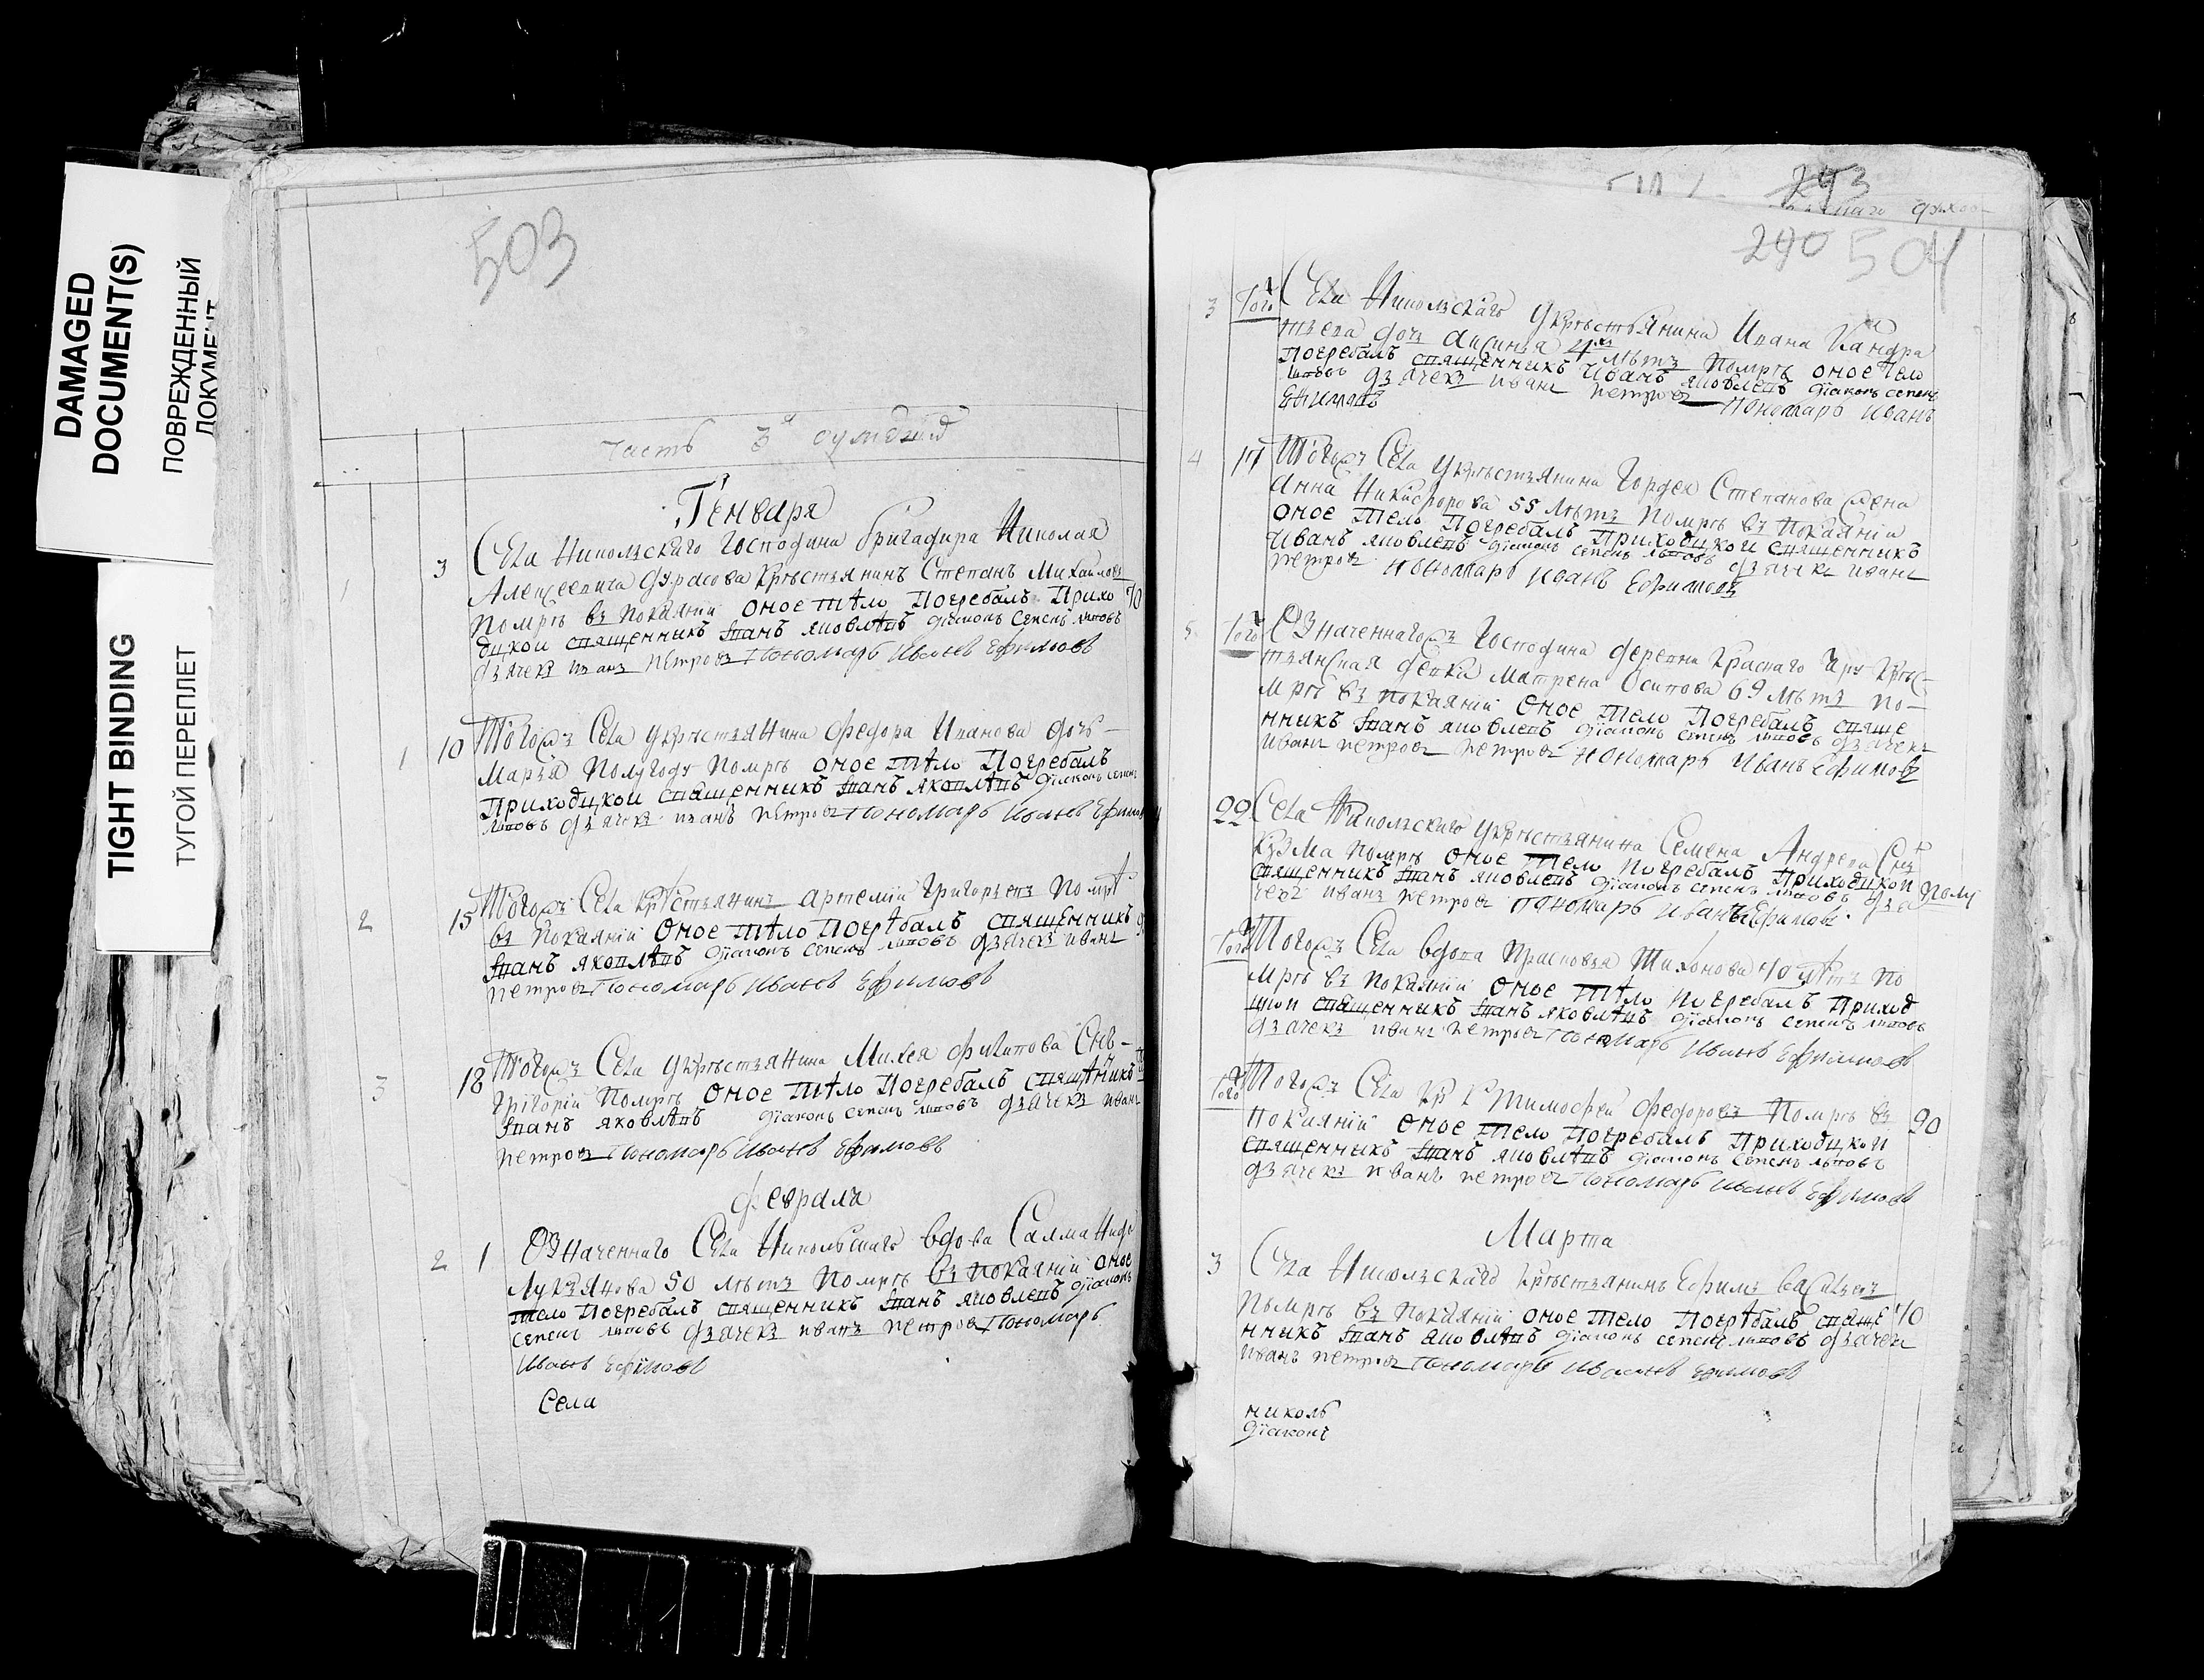 DAMAGED
DOCUMENT(S)
ПОВРЕЖДЕННЫЙ
ДОКУМЕНТ
TIGHT BINDING
ТУГОЙ ПЕРЕПЛЕТ
503
часть 3я оумершихъ
Генваря
1 3 Села Никольскаго Господина бригадира Николая
Алексеевича дурасова крѣстьянинъ Степанъ Михайловъ
помрѣ въ покаянїи оное тѣло погребалъ прихо 70
дцкои священникъ Іванъ яковлѣвъ дїаконъ семенъ львовъ
дьячекъ иванъ петровъ пономарь Иванъ Ефимовъ
1 10 Тогожъ Села у крѣстьянина федора Иванова дочь
Марья полугоду помрѣ оное тѣло погребалъ
приходцкои священникъ Іванъ яковлѣвъ дїаконъ семенъ
львовъ дьячекъ иванъ петровъ пономарь Иванъ Ефимовъ
2 15 Тогожъ Села крѣстьянинъ артемїи григорьевъ помрѣ
въ покаянїи оное тѣло погрѣбалъ священникъ
Іванъ яковлѣвъ дїаконъ семенъ львовъ дьячекъ иванъ
петровъ пономарь Иванъ Ефимовъ
3 18 Тогожъ Села у крѣстьянина Михея филипова Снъ
Григорїи помрѣ оное тѣло погребалъ свящѣникъ
Іванъ яковлѣвъ дїаконъ семенъ львовъ дьячекъ иванъ
петровъ пономарь Иванъ Ефимовъ
февраля
2 1 Означеннаго Села Никольскаго вдова Саламанида
Лукьянова 50 лѣтъ помрѣ въ покаянїи оное
тело погребалъ священникъ Іванъ яковлевъ дїаконъ
семенъ львовъ дьячекъ иванъ петровъ пономарь
Иванъ Ефимовъ
Села
293
290 504
3 Того Села Никольскаго у крѣстьянина Ивана Кандра
тьева дочь аксинья 4хъ лѣтъ помрѣ оное тело
погребалъ священникъ Иванъ яковлевъ дїаконъ семенъ
львовъ дьячекъ иванъ петровъ пономарь Иванъ
Ефимовъ
4 17 Тогожъ Села у крѣстьянина Гордея Степанова жена
анна Никифорова 55 лѣтъ помрѣ въ покаянїи
оное тело погребалъ приходцкои священникъ
Иванъ яковлевъ дїаконъ семенъ львовъ дьячекъ иванъ
петровъ пономарь Иванъ Ефимовъ
5 Того Означеннагожъ Господина деревни Краснаго Яру крѣс
тьянская девка Матрена Осипова 69 лѣтъ по
мрѣ въ покаянїи оное тело погребалъ свяще
нникъ Іванъ яковлевъ дїаконъ семенъ львовъ дьячекъ
иванъ петровъ петровъ пономарь Иванъ Ефимовъ
22 Села Никольскаго у крѣстьянина Семена Андрева Снъ
Кузма помрѣ оное тело погребалъ приходцкои
священникъ Іванъ яковлевъ дїаконъ семенъ львовъ дья полу
чекъ иванъ петровъ пономарь Иванъ Ефимовъ
Того Тогожъ Села вдова прасковья Тихонова 70 лѣтъ по
мрѣ въ покаянїи оное тѣло погребалъ приход
цкои священникъ Іванъ яковлѣвъ дїаконъ семенъ львовъ
дьячекъ иванъ петровъ пономарь Иванъ Ефимовъ
Того Тогожъ Села кр Тимофеи федоровъ помрѣ въ
покаянїи оное тело погребалъ приходцкои 90
священникъ Іванъ яковлѣвъ дїаконъ семенъ львовъ
дьячекъ иванъ петровъ пономарь Иванъ Ефимовъ
Марта
3 Села Никольскаго крѣстьянинъ Ефимъ васильевъ
помрѣ въ покаянїи оное тело погрѣбалъ свяще 70
нникъ Іванъ яковлѣвъ дїаконъ семенъ львовъ дьячекъ
иванъ петровъ пономарь Иванъ Ефимовъ
николь
дїаконъ